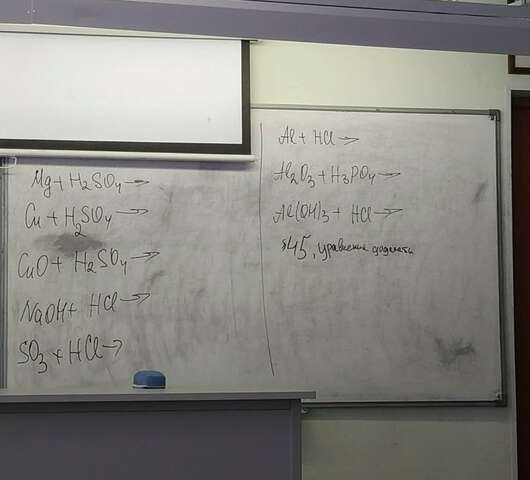 Mg + H₂SO₄ →
Cu + H₂SO₄ →
CuO + H₂SO₄ →
NaOH + HCl →
SO₃ + HCl →
Al + HCl →
Al₂O₃ + H₃PO₄ →
Al(OH)₃ + HCl →
§45, уравнения доделать